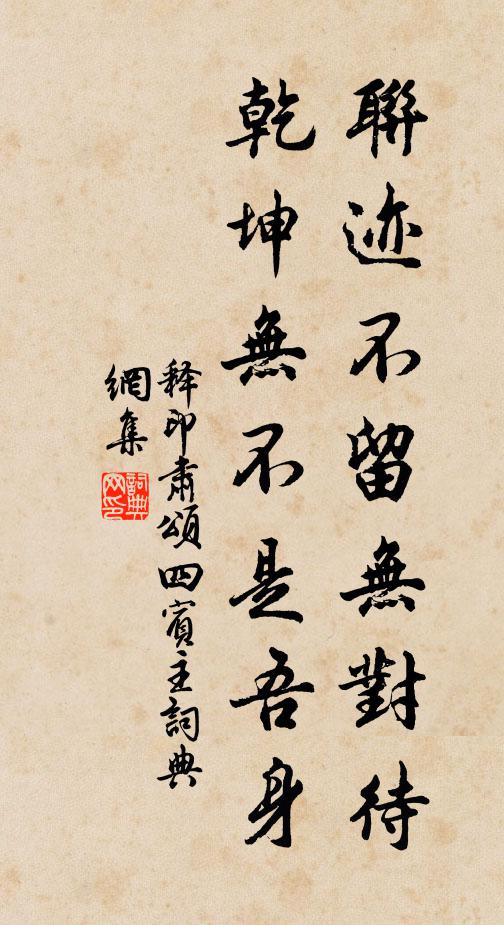 聯迹不留無對待
乾坤無不是吾身
释印肃頌四賓主詞典
網集
詞典
网印